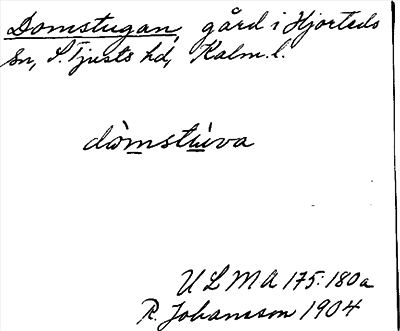 Domstugan, gård i Hjorteds
sn, S. Tjusts hd, Kalm. l.
dòmstùva
ULMA 175:180a
R. Johansson 1904